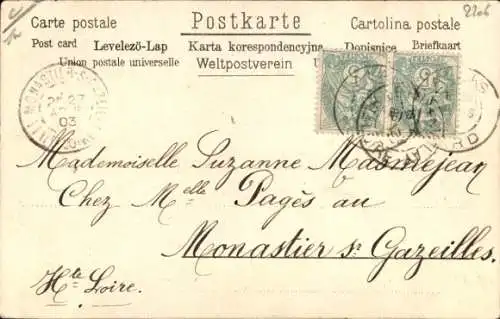 2206
Carte postale Postkarte Cartolina postale
Post card Levelező-Lap Karta korespondencyjna Dopisnice Briefkaart
Union postale universelle Weltpostverein U
MONASTIER-S-GAZEILLE
27
03
Mademoiselle Suzanne Masmejean
Chez Melle Pagès au
Monastier sr Gazeilles.
Hte Loire.